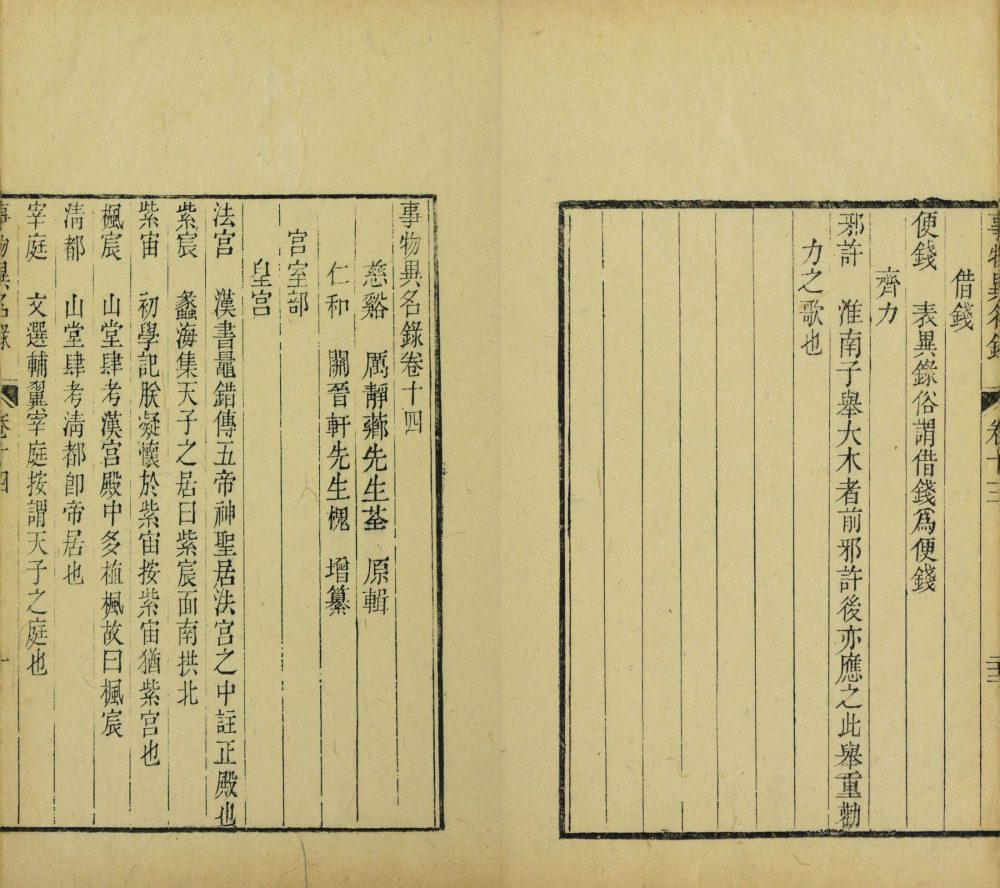 事物異名錄 卷十三 二十三
借錢
便錢 表異錄俗謂借錢爲便錢
齊力
邪許 淮南子舉大木者前邪許後亦應之此舉重勸
力之歌也
事物異名錄卷十四
慈谿 厲靜薌先生荃 原輯
仁和 關晉軒先生槐 增纂
宮室部
皇宮
法宮 漢書鼂錯傳五帝神聖居法宮之中註正殿也
紫宸 蠡海集天子之居曰紫宸面南拱北
紫宙 初學記朕凝懷於紫宙按紫宙猶紫宮也
楓宸 山堂肆考漢宮殿中多植楓故曰楓宸
淸都 山堂肆考淸都卽帝居也
宰庭 文選輔翼宰庭按謂天子之庭也
事物異名錄 卷十四 一